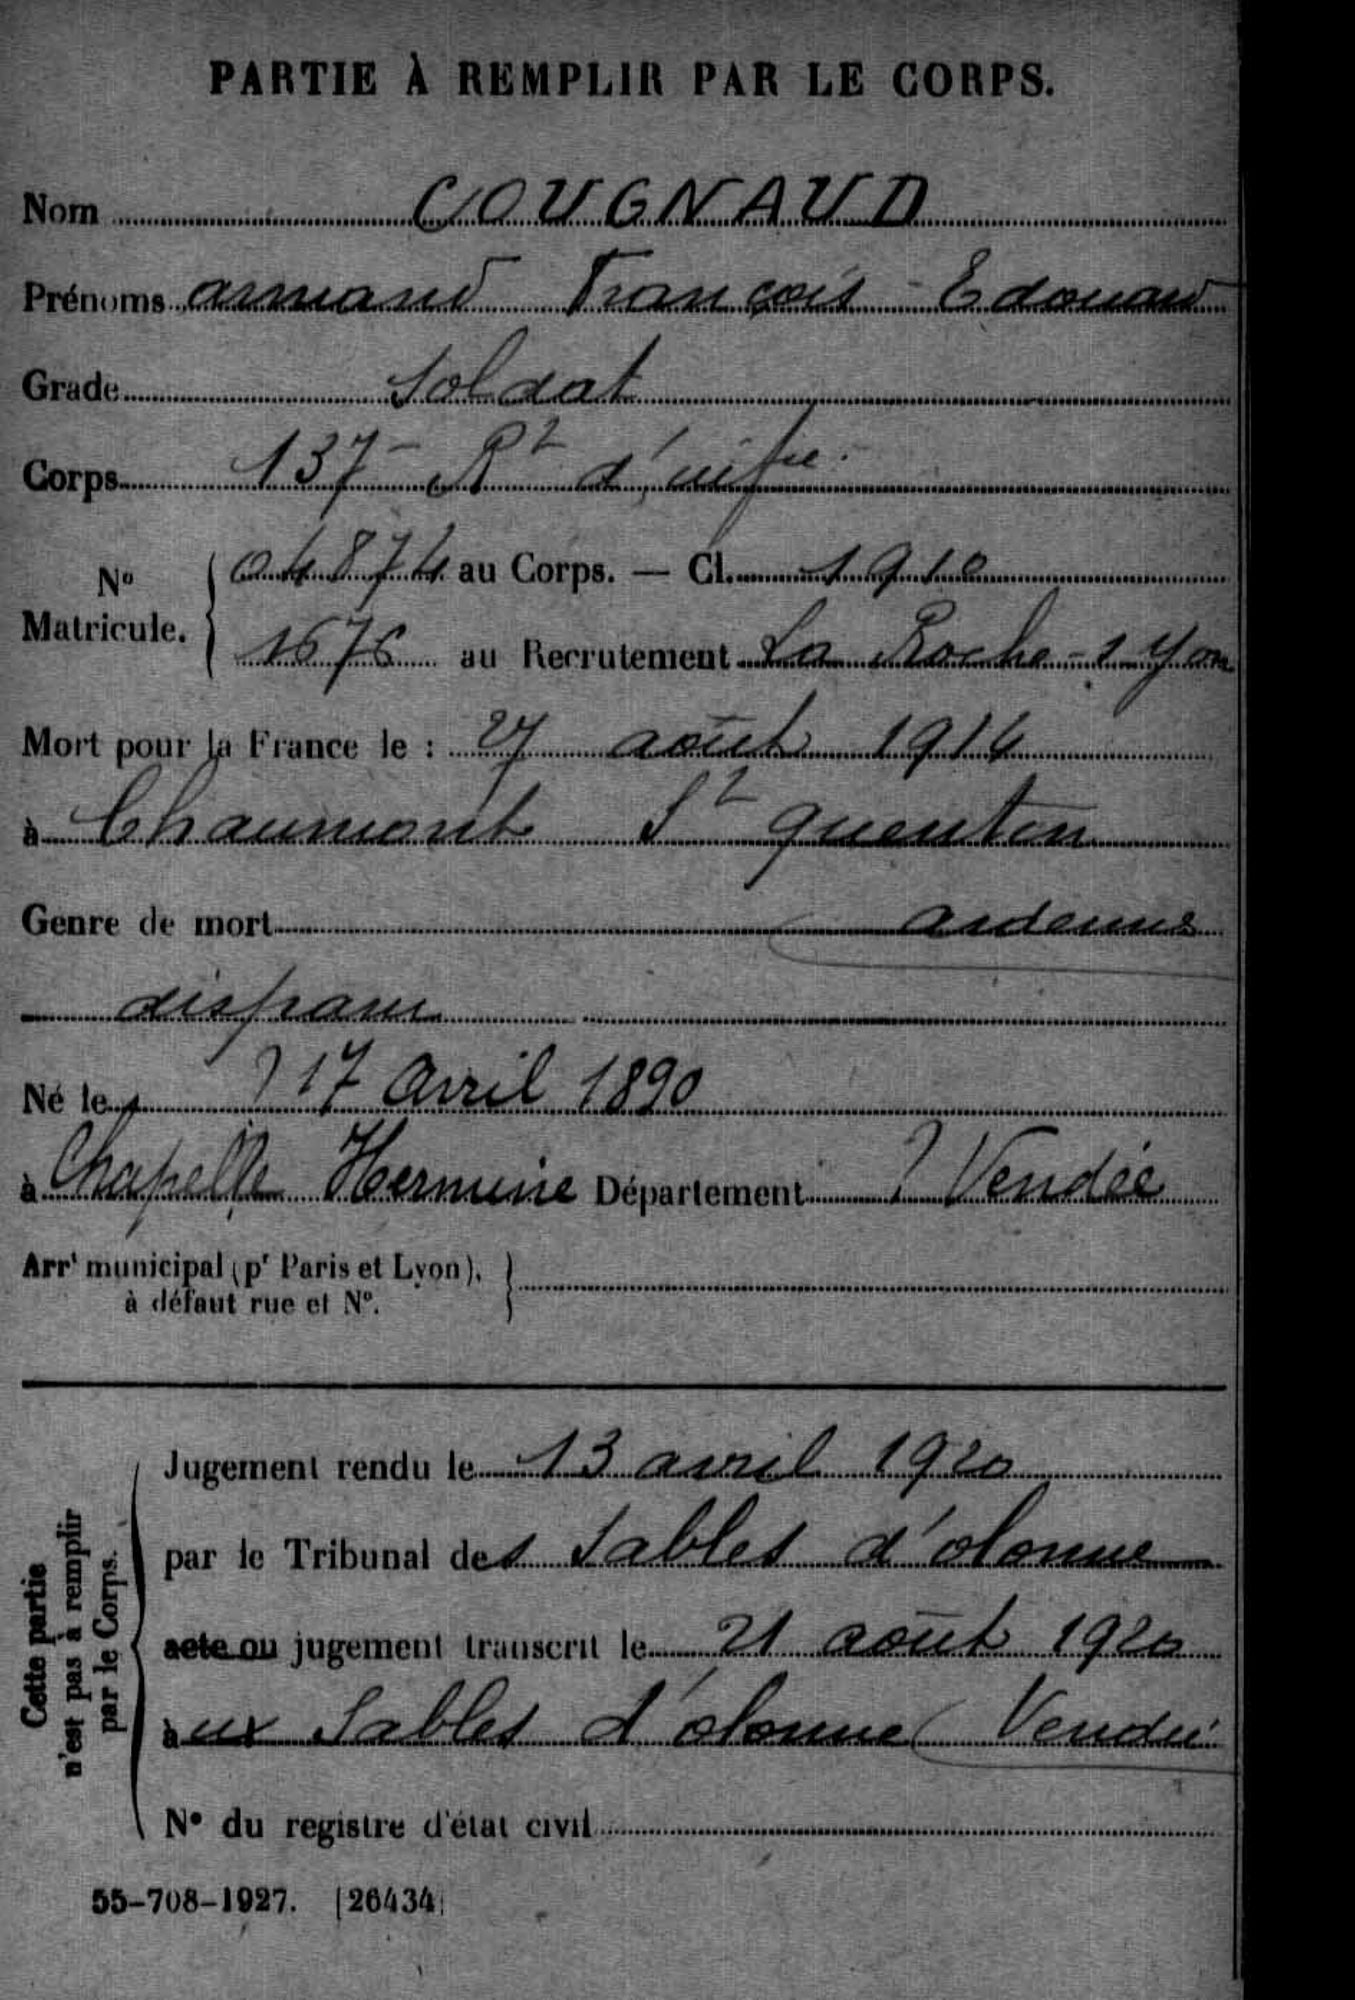 PARTIE À REMPLIR PAR LE CORPS.
Nom COUGNAUD
Prénoms Armand François Edouard
Grade Soldat
Corps 137 - Rt d'infie.
No Matricule. 04874 au Corps. — Cl. 1910
1676 au Recrutement La Roche-s-Yon
Mort pour la France le : 27 août 1914
à Chaumont St Quentin
Genre de mort Ardennes
disparu
Né le 17 Avril 1890
à Chapelle Hermuie Département Vendée
Arrt municipal (pr Paris et Lyon),
à défaut rue et No.
Cette partie
n'est pas à remplir
par le Corps.
Jugement rendu le 13 avril 1920
par le Tribunal des Sables d'olonne
acte ou jugement transcrit le 21 août 1920
aux Sables d'olonne (Vendée
No du registre d'état civil
55-708-1927. [26434]